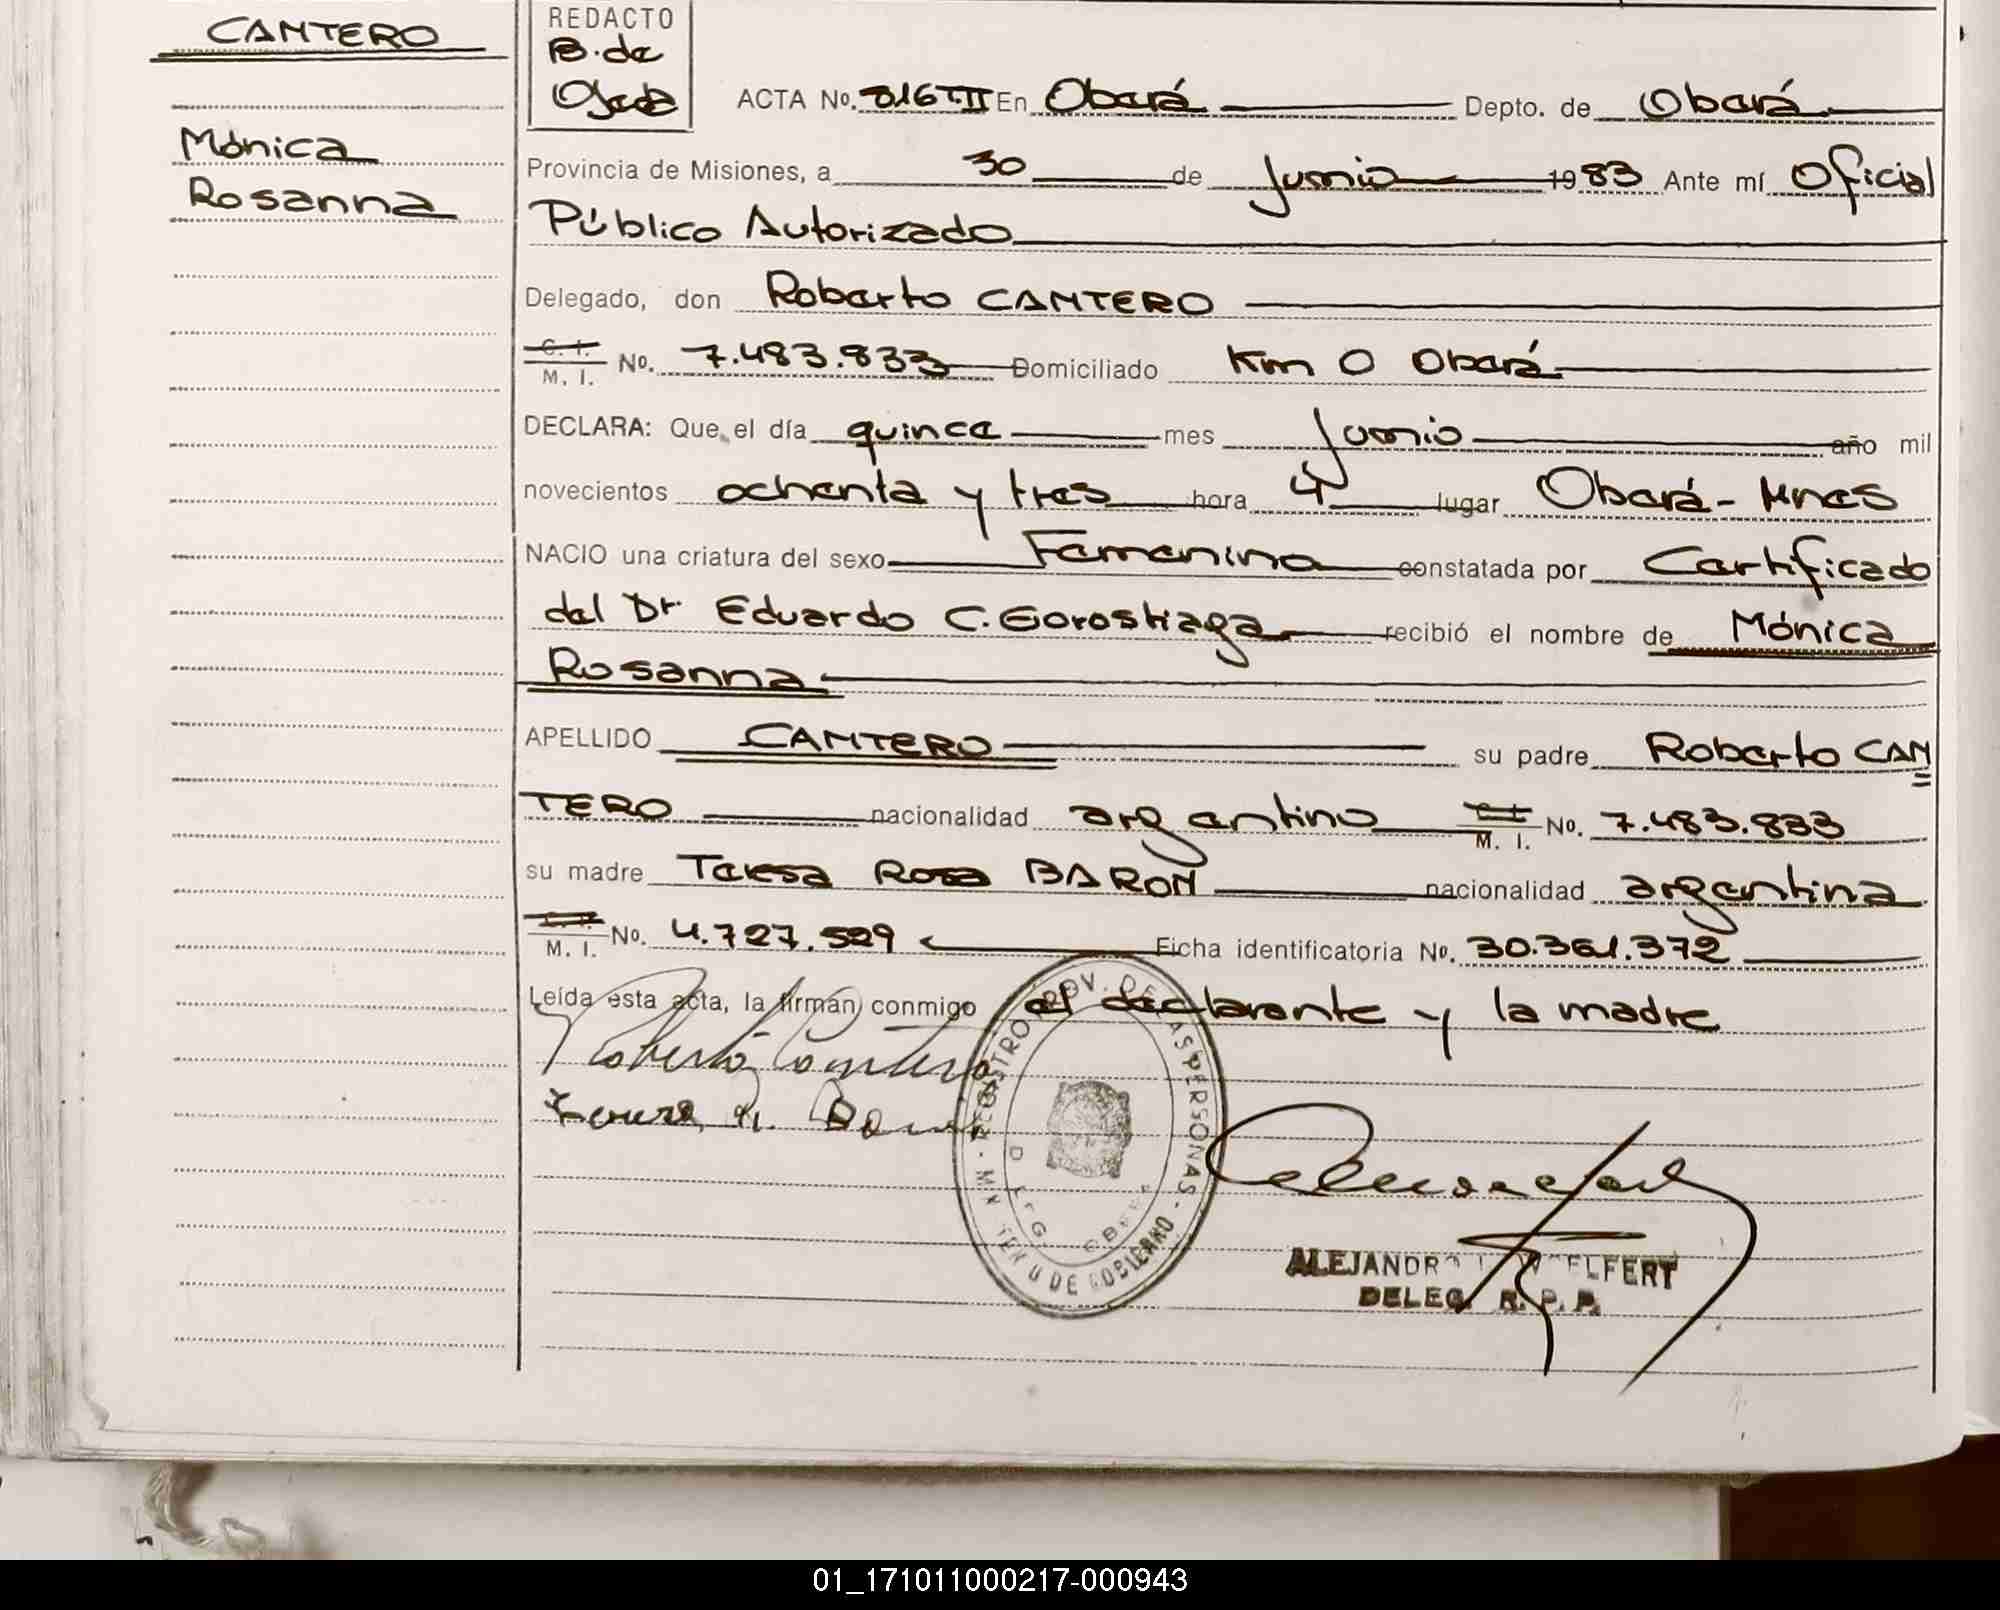 CANTERO
Mónica
Rosanna
REDACTO
B. de
Ojeda
ACTA No. 816 T.II En Oberá Depto. de Oberá
Provincia de Misiones, a 30 de Junio 1983 Ante mí Oficial
Público Autorizado
Delegado, don Roberto CANTERO
C. I.
M. I. No. 7.483.833 Domiciliado Km 0 Oberá
DECLARA: Que el día quince mes Junio año mil
novecientos ochenta y tres hora 4 lugar Oberá - Mnes
NACIO una criatura del sexo Femenino constatada por Certificado
del Dr. Eduardo C. Gorostiaga recibió el nombre de Mónica
Rosanna
APELLIDO CANTERO su padre Roberto CAN
TERO nacionalidad argentino C I
M. I. No. 7.483.833
su madre Teresa Rosa BARON nacionalidad argentina
M. I. No. 4.727.529 Ficha identificatoria No. 30.361.372
Leída esta acta, la firman conmigo el declarante y la madre
Roberto Cantero
REGISTRO PROV. DE LAS PERSONAS
DE GOBIERNO
ALEJANDRO
DELEG. R. P. P.
01_171011000217-000943